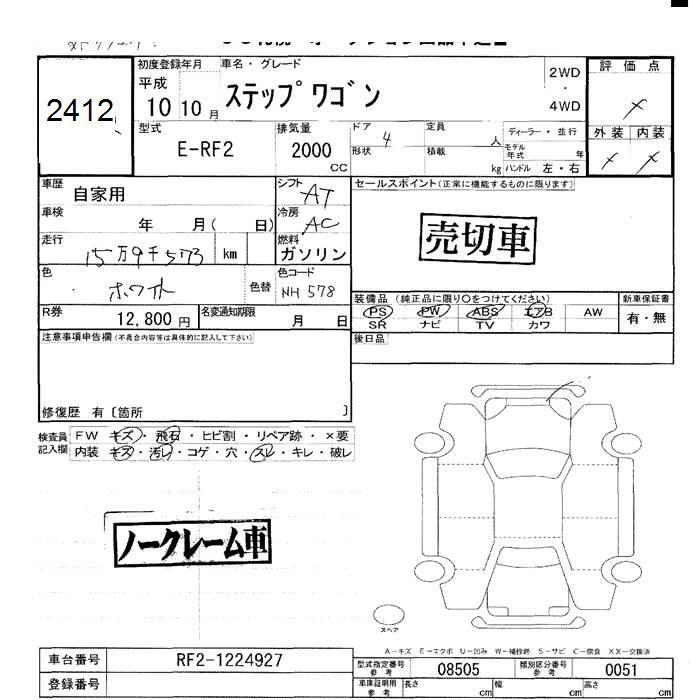 初度登録年月 車名・グレード 2WD ・ 4WD 評価点
2412
平成 10 10月 ステップワゴン
外装 内装
型式 E-RF2 排気量 2000 CC
ドア 4 定員 人 ディーラー・並行
形状 積載 kg モデル年式 年 ハンドル 左・右
車歴 自家用 シフト AT セールスポイント(正常に機能するものに限ります)
車検 年 月( 日) 冷房 AC
売切車
走行 15万9千573 km 燃料 ガソリン
色 ホワイト 色替 色コード NH 578
装備品 (純正品に限り〇をつけてください) 新車保証書
PS PW ABS エアB AW 有・無
SR ナビ TV カワ
R券 12,800 円 名変通知期限 月 日
注意事項申告欄(不具合内容等は具体的に記入して下さい) 後日品
修復歴 有〔箇所 〕
検査員記入欄 FW キズ・飛石・ヒビ割・リペア跡・×要
内装 キズ・汚レ・コゲ・穴・スレ・キレ・破レ
ノークレーム車
スペア
A-キズ E-エクボ U-凹み W-補修跡 S-サビ C-腐食 XX-交換済
車台番号 RF2-1224927 型式指定番号 参考 08505 類別区分番号 参考 0051
登録番号 車庫証明用 参考 長さ cm 幅 cm 高さ cm